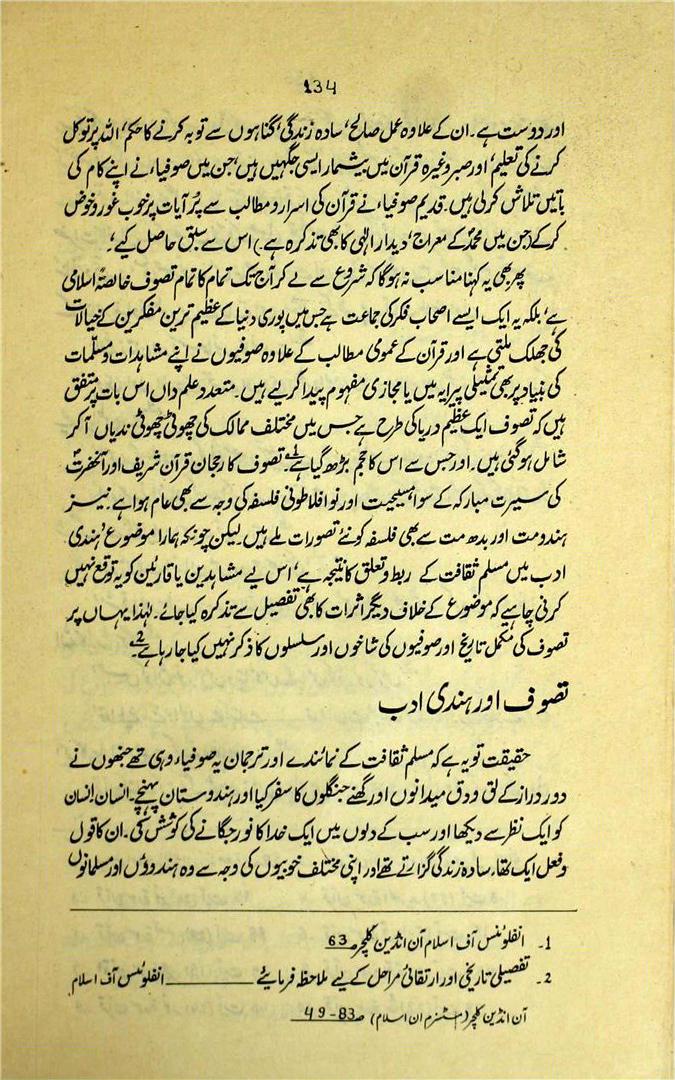 134
اور دوست ہے۔ ان کے علاوہ عمل صالح، سادہ زندگی، گناہوں سے توبہ کرنے کا حکم، اللہ پر توکل
کرنے کی تعلیم، اور صبر وغیرہ قرآن میں بیشمار ایسی جگہیں ہیں، جن میں صوفیاء نے اپنے کام کی
باتیں تلاش کر لی ہیں۔ قدیم صوفیاء نے قرآن کی اسرار و مطالب سے پُر آیات پر خوب غور و خوض
کرکے (جن میں محمدؐ کے معراج، دیدار الٰہی کا بھی تذکرہ ہے۔) اس سے سبق حاصل کیے،
پھر بھی یہ کہنا مناسب نہ ہوگا کہ شروع سے لے کر آج تک تمام کا تمام تصوف خالصتہً اسلامی
ہے، بلکہ یہ ایک ایسے اصحاب فکر کی جماعت ہے جس میں پوری دنیا کے عظیم ترین مفکرین کے خیالات
کی جھلک ملتی ہے اور قرآن کے عمومی مطالب کے علاوہ صوفیوں نے اپنے مشاہدات و مسلّمات
کی بنیاد پر بھی تمثیلی پیرایہ میں یا مجازی مفہوم پیدا کر لیے ہیں۔ متعدد علم داں اس بات پر متفق
ہیں کہ تصوف ایک عظیم دریا کی طرح ہے جس میں مختلف ممالک کی چھوٹی چھوٹی ندیاں آ کر
شامل ہوگئی ہیں۔ اور جس سے اس کا حجم بڑھ گیا ہے۔1 تصوف کا رجحان قرآن شریف اور آنحضرتؐ
کی سیرت مبارکہ کے سوا مسیحیت اور نوافلاطونی فلسفہ کی وجہ سے بھی عام ہوا ہے۔ نیز
ہندو مت اور بدھ مت سے بھی فلسفہ کو نئے تصورات ملے ہیں۔ لیکن چونکہ ہمارا موضوع، ہندی
ادب میں مسلم ثقافت کے ربط و تعلق کا نتیجہ ہے، اس لیے مشاہدین یا قارئین کو یہ توقع نہیں
کرنی چاہیے کہ موضوع کے خلاف دیگر اثرات کا بھی تفصیل سے تذکرہ کیا جائے۔ لہٰذا یہاں پر
تصوف کی مکمل تاریخ اور صوفیوں کی شاخوں اور سلسلوں کا ذکر نہیں کیا جا رہا ہے۔2
تصوف اور ہندی ادب
حقیقت تو یہ ہے کہ مسلم ثقافت کے نمائندے اور ترجمان یہ صوفیاء وہی تھے جنھوں نے
دور دراز کے لق و دق میدانوں اور گھنے جنگلوں کا سفر کیا اور ہندوستان پہنچے۔ انسان انسان
کو ایک نظر سے دیکھا اور سب کے دلوں میں ایک خدا کا نور جگانے کی کوشش کی۔ ان کا قول
و فعل ایک تھا، سادہ زندگی گزارتے تھے اور اپنی مختلف خوبیوں کی وجہ سے وہ ہندوؤں اور مسلمانوں
1۔ انفلوئنس آف اسلام آن انڈین کلچر ص 63
2۔ تفصیلی تاریخی اور ارتقائی مراحل کے لیے ملاحظہ فرمایئے ــــــ انفلوئنس آف اسلام
آن انڈین کلچر (مسٹسزم ان اسلام) ص 83-49